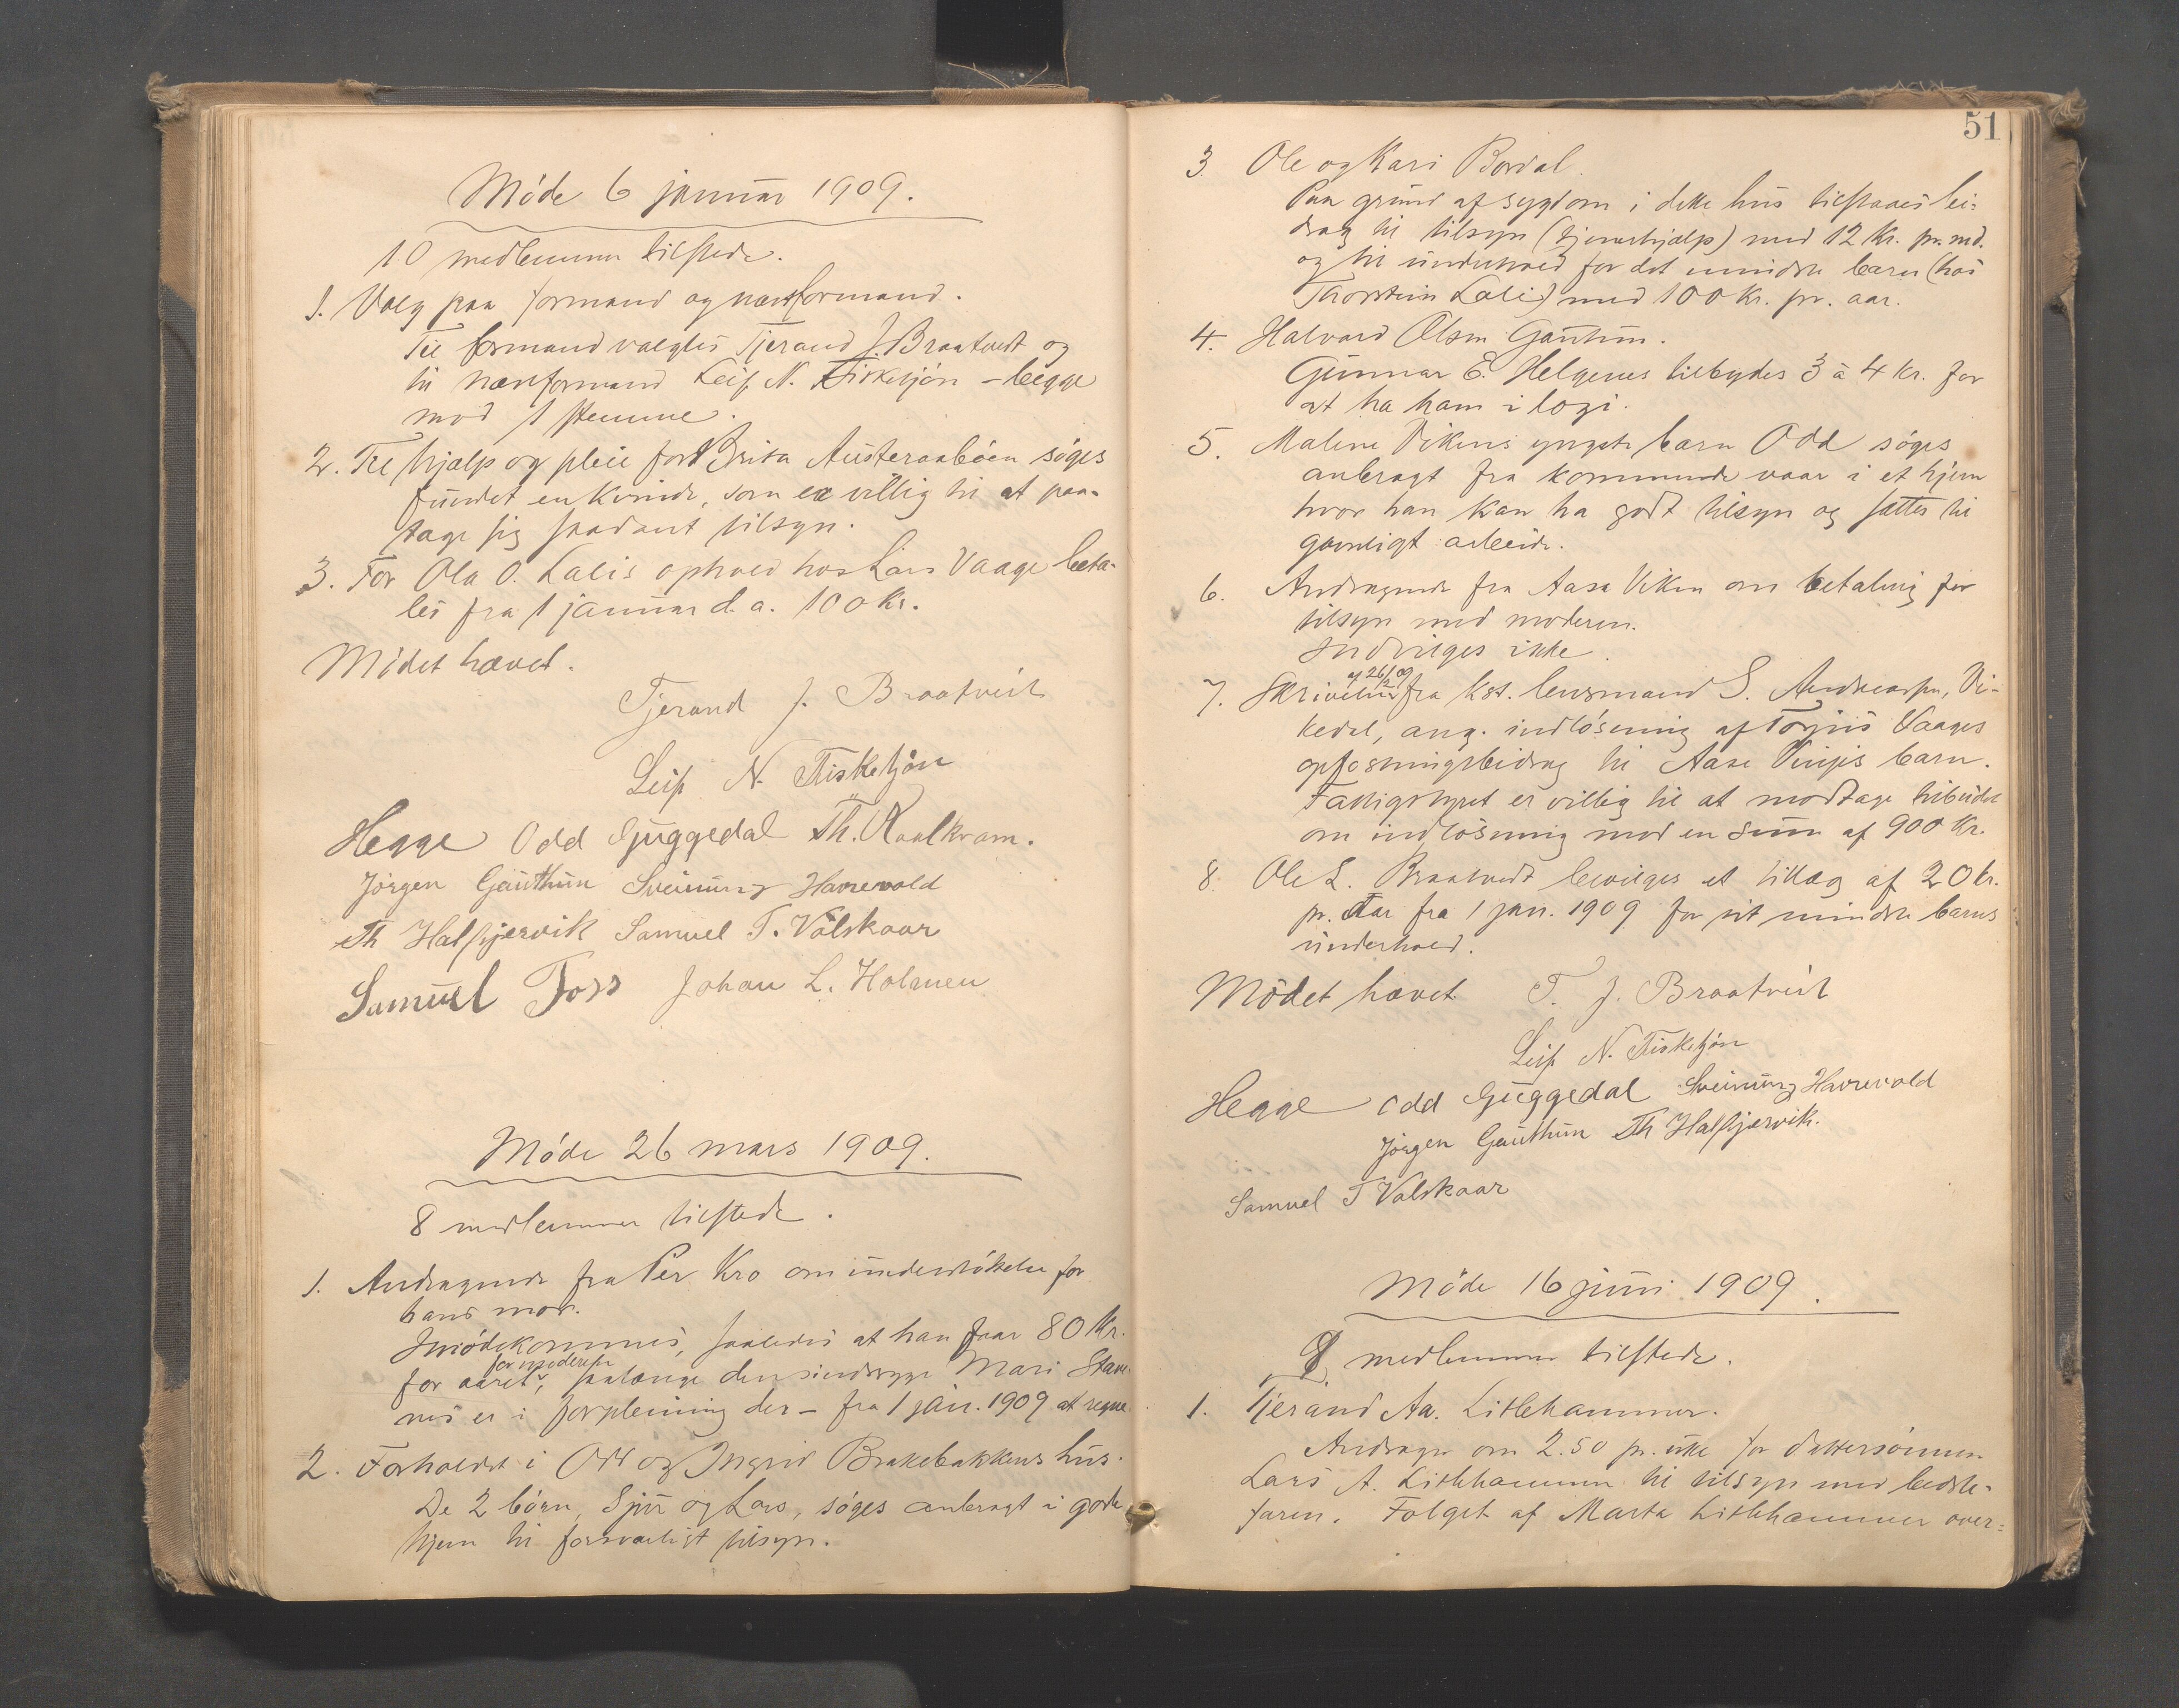 Møde 6 januar 1909.
10 medlemmer tilstede.
1. Valg paa formand og næstformand.
Til formand valgtes Tjerand J. Braatveit og
til næstformand Leif N. Fisketjøn – begge
mod 1 stemme.
2. Til hjælp og pleie for Brita Austeraabøen søges
fundet en kvinde, som er villig til at paa-
tage sig saadant tilsyn.
3. For Ola O. Lalis ophold hos Lars Vaage beta-
les fra 1 januar d. a. 100 kr.
Mødet hævet.
Tjerand J. Braatveit
Leif N. Fisketjön
Hegge Odd Guggedal Th. Kaalkvam.
Jørgen Gauthun Sveinung Havrevold
Th Halfkjærvik Samuel T. Valskaar
Samuel Foss Johan L. Holmen
Møde 26 mars 1909.
8 medlemmer tilstede.
1. Andragende fra Per Kro om understøttelse for
hans mor.
Imødekommes, saaledes at han faar 80 kr.
for moderen
for aaret, saalænge den sindssyge Mari Stave-
nes er i forpleining der – fra 1 jan. 1909 at regne.
2. Forholdet i Odd og Ingrid Brakebakkens hus.
De 2 børn, Sjur og Lars, søges anbragt i gode
hjem til forsvarligt tilsyn.
51
3. Ole og Kari Bordal.
Paa grund af sygdom i dette hus tilstaaes bi-
drag til tilsyn (tjenerhjælp) med 12 kr. pr. md.
og til underhold for det mindste barn (hos
Thorstein Lali) med 100 kr. pr. aar.
4. Halvard Olsen Gauthun.
Gunnar E. Helgenes tilbydes 3 à 4 kr. for
at ha ham i logi.
5. Maline Vikens yngste barn Odd søges
anbragt fra kommende vaar i et hjem
hvor han kan ha godt tilsyn og sættes til
gavnligt arbeide.
6. Andragende fra Aasa Viken om betaling for
tilsyn med moderen.
Indvilges ikke.
af 26/2 09
7. Skrivelse fra kst. lensmand S. Andreassen, Vi-
kedal, ang. indløsning af Torjus Vaages
opfostringsbidrag til Aase Vinjes barn.
Fattigstyret er villig til at modtage tilbudet
om indløsning mod en sum af 900 kr.
8. Ole L. Braatveit bevilges et tillæg af 20 kr.
pr. aar fra 1 jan. 1909 for sit mindste barns
underhold.
Mødet hævet. T. J. Braatveit
Leif N. Fisketjön
Hegge Odd Guggedal Sveinung Havrevold
Jørgen Gauthun Th Halfkjærvik.
Samuel T Valskaar
Møde 16 juni 1909.
medlemmer tilstede.
1. Tjerand Aa. Litlehammer.
Andrager om 2.50 pr. uke for dattersønnen
Lars A. Litlehammer til tilsyn med bedste-
faren. Følget af Marta Litlehammer over-